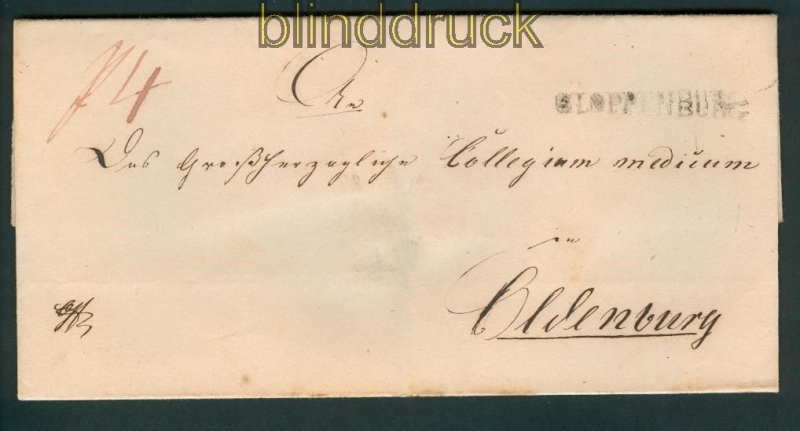 blinddruck
4
CLOPPENBURG
An
Das Großherzogliche Collegium medicum
in
Oldenburg